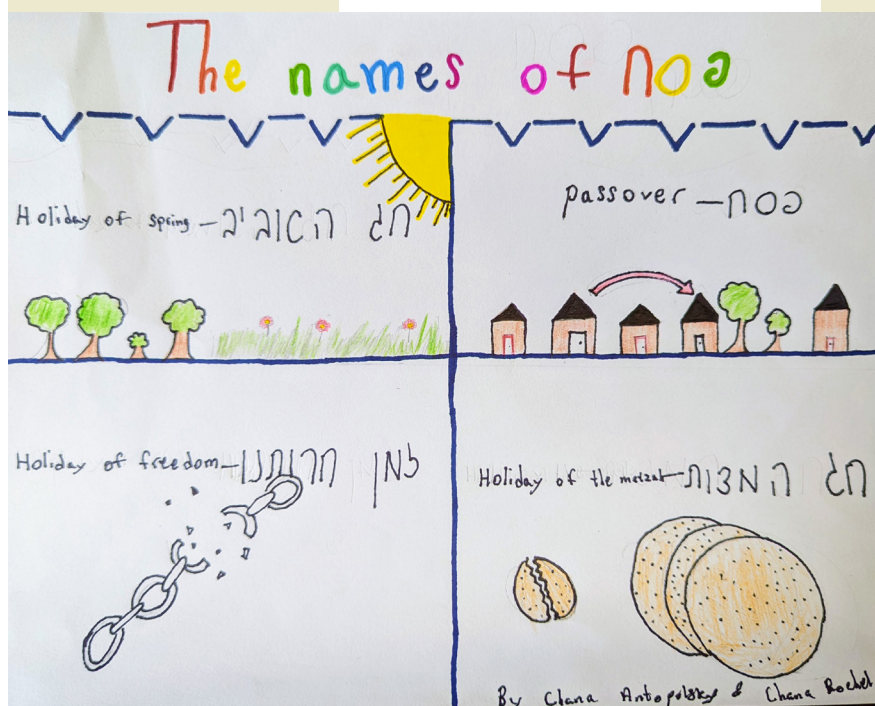 The names of פסח
Holiday of spring – חג האביב
passover – פסח
Holiday of freedom – זמן חרותנו
Holiday of the – חג המצות
By Chana Antopolsky & Chana Rochel